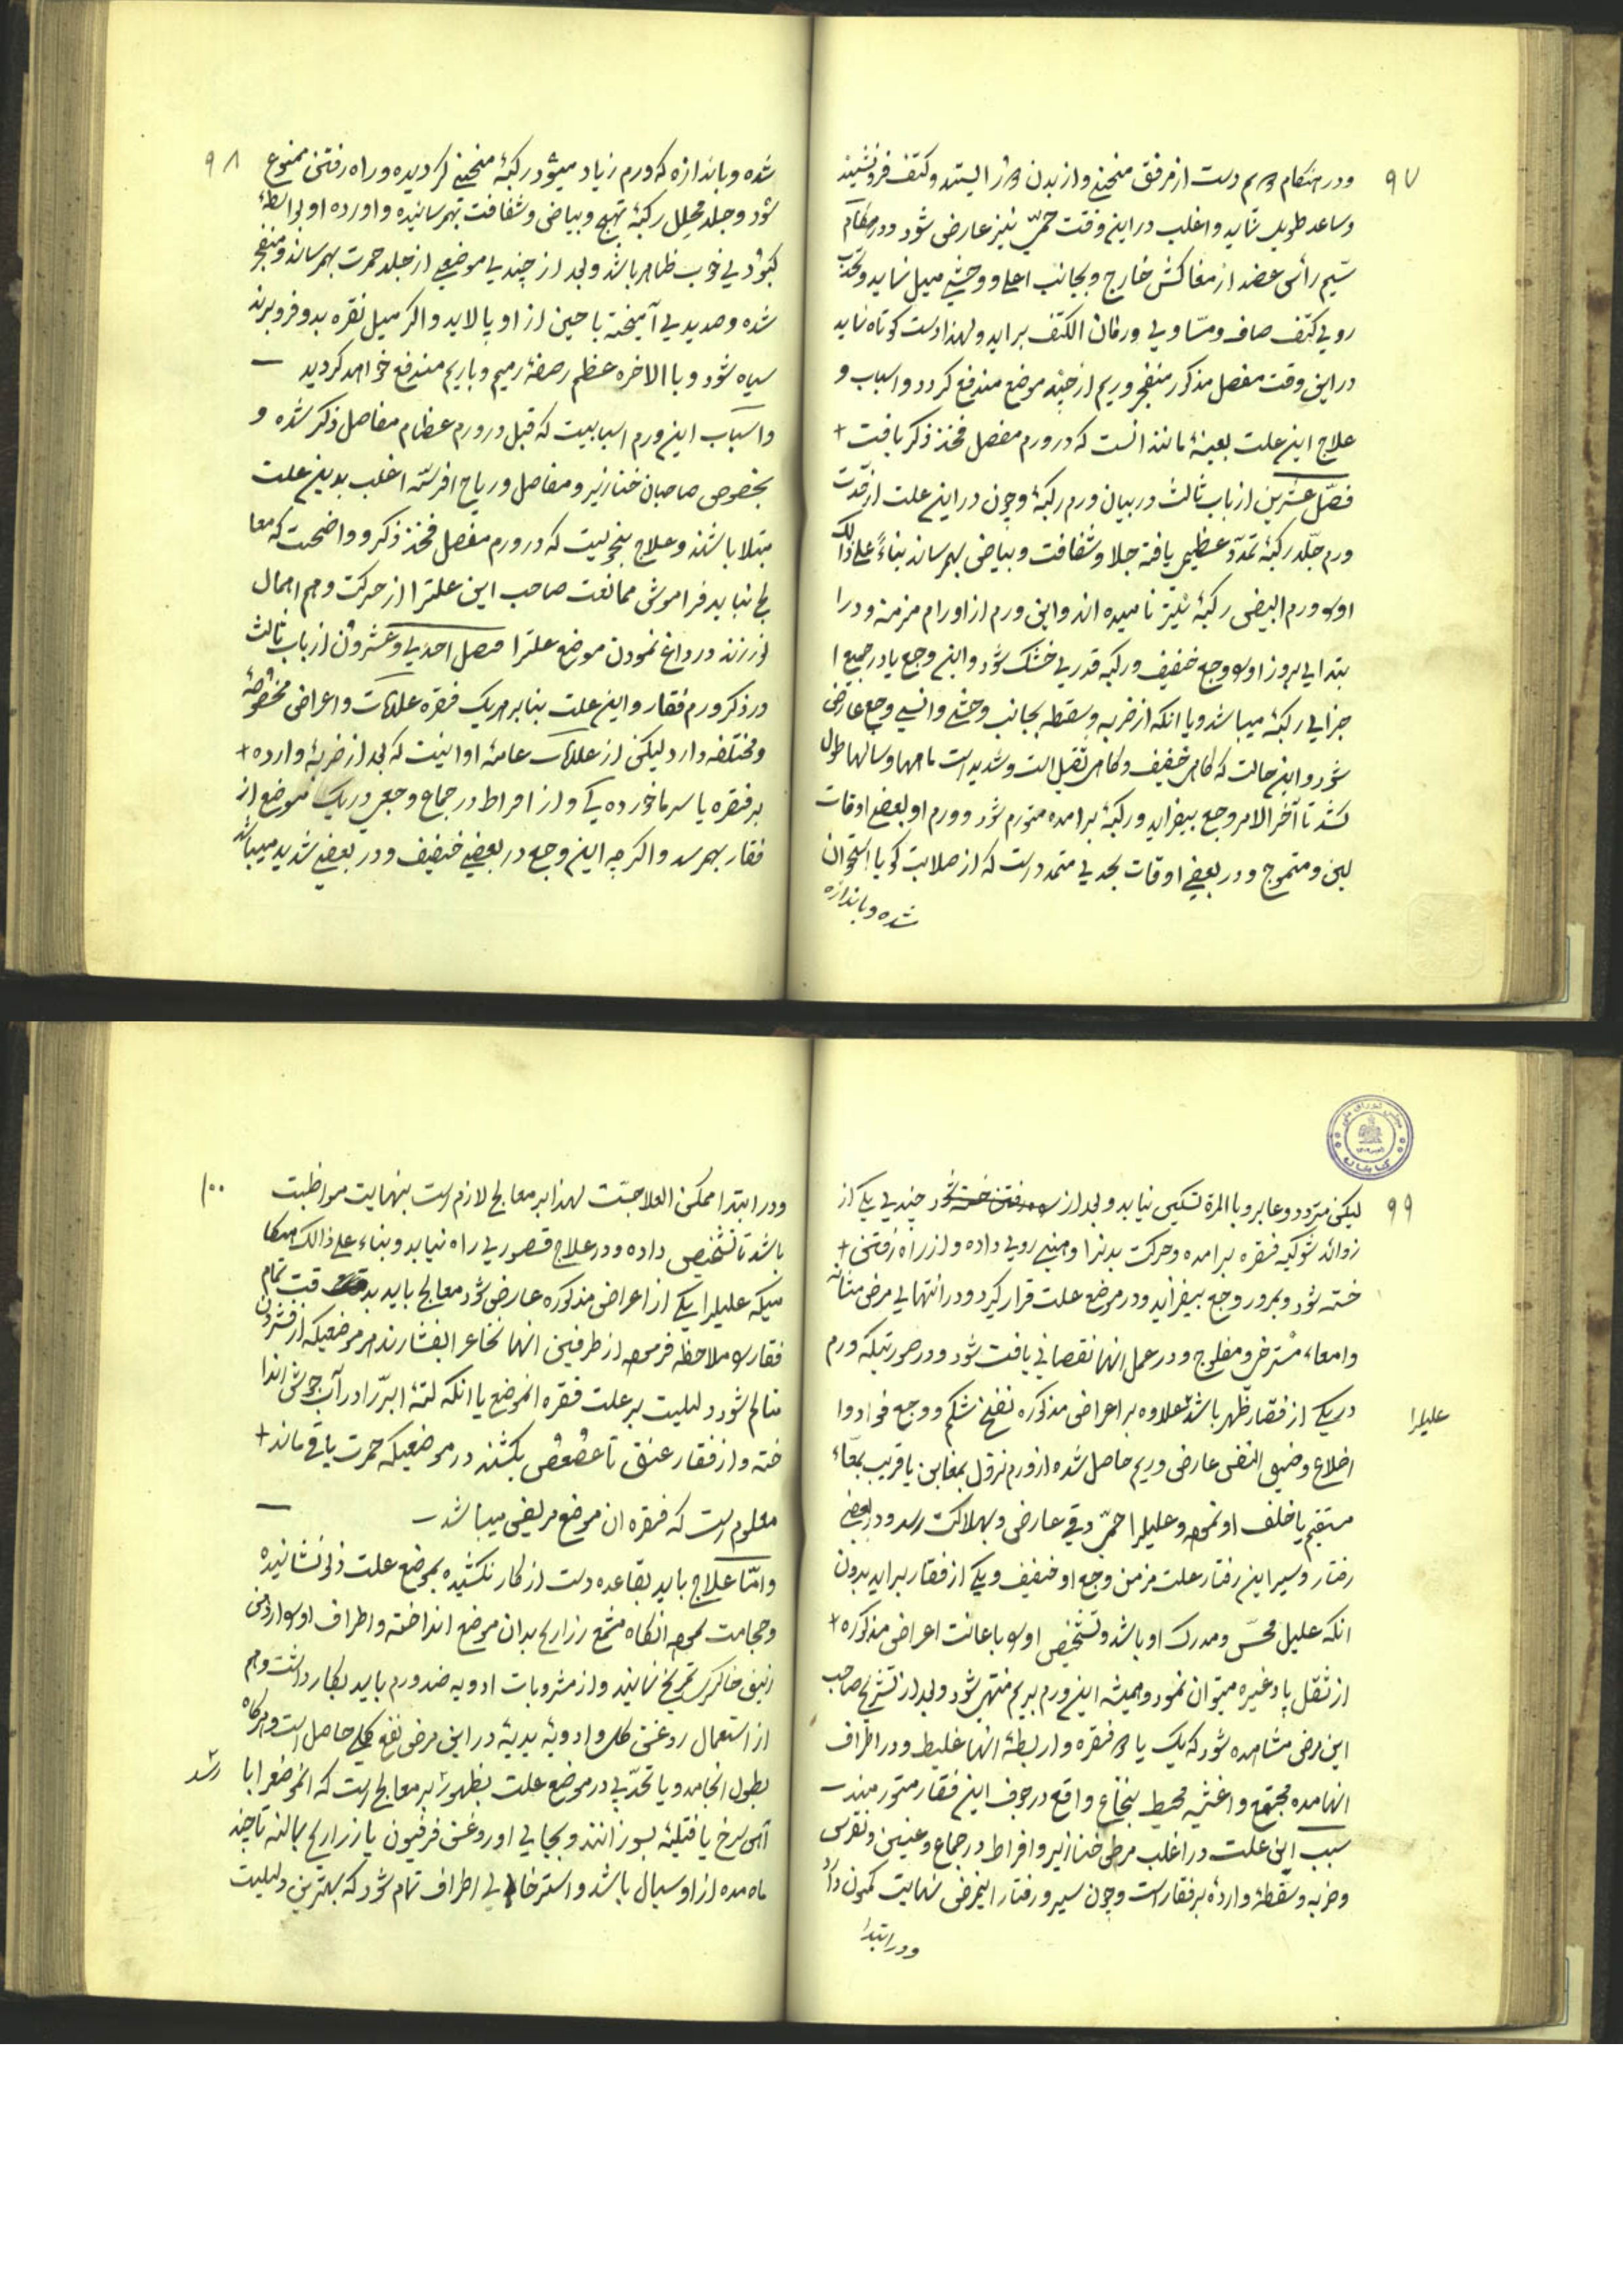 ۹۷
ودر هنگام ورم دست از مرفق منحنی و از بدن دور ایستد وکتف فرونشیند
وساعد طویل نماید و اغلب در این وقت حمّی نیز عارض شود ودر مقام
سیّم رأس عضد از مغاکش خارج وبجانب اعلی و وحشی میل نماید وتحدّب
رویی کتف صاف ومساویی ورفان الکتف براید ولهذا دست کوتاه نماید
در این وقت مفصل مذکور منفجر وریم از چند موضع مندفع کردد واسباب و
علاج این علت بعینهٔ مانند انست که در ورم مفصل فخذ ذکر یافت +
فصّل عشرین از باب ثالث در بیان ورم رکبهٔ وچون در این علت از قدّت
ورم جلد رکبهٔ تمدّد عظیمی یافته جلا وشفافت وبیاضی بهمرساند بناءً علی ذالک
اورا ورم ابیض رکبهٔ نیز نامیده اند واین ورم از اورام مزمنه ودر ا
بتدایی بروز او وجع خفیف ورکبه قدریی خشک شود واین وجع یا در جمیع ا
جزایی رکبهٔ میباشد ویا انکه از ضربه وسقطه بجانب وحشی وانسی وجع عارض
شود واین حالت که کاهی خفیف وکاهی ثقیل است وشدید است ماهها وسالها طول
کشد تا آخر الامر وجع بیفزاید ورکبهٔ برامده متورم شود وورم او بعضی اوقات
لین ومتموج ودر بعضی اوقات بحدیی متمدد است که از صلابت کویا استخوان
شده وباندازه
۹۸
شده وباندازه که ورم زیاد میشود رکبهٔ منحنی کردیده وراه رفتن ممنوع
شود وجلد محلل رکبهٔ تهبج وبیاضی وشفافت بهمرسانیده واورده او بواسطهٔ
کبودیی خوب ظاهر باشد وبعد از چندیی موضعی از جلد حمرت بهمرساند ومنفجر
شده وصدیدیی آمیخته با جبن از او پالاید واکر میل نقره بدو فرو برند
سیاه شود وباالاخره عظم رضفهٔ رمیم وباریم مندفع خواهد کردید
واسباب این ورم اسبابیست که قبل در ورم عظام مفاصل ذکر شده و
بخصوص صاحبان خنازیر ومفاصل وریاح افرسّه اغلب بدین علت
مبتلا باشند وعلاج بنحویست که در ورم مفصل فخذ ذکر و واضحست که معا
لج نباید فراموش ممانعت صاحب این علترا از حرکت وهم اهمال
نورزند در داغ نمودن موضع علترا فصل احدیی وعشرون از باب ثالث
در ذکر ورم فقار واین علت بنا بر هر یک فقره علامات واعراض مخصوصهٔ
ومختلفه دارد لیکن از علامات عامهٔ او اینست که بعد از ضربهٔ وارده +
بر فقره یا سرماخورده کی و از افراط در جماع وجعی در یک موضع از
فقار بهمرسد واکرچه این وجع در بعضی خفیف ودر بعضی شدید میباشد
۹۹
لیکن متردد وعابر وباالمرة تسکین نیابد وبعد از چندیی یکی از
زوائد شوکیه فقره برامده وحرکت بدنرا وهنیی رویی داده و از راه رفتن +
خسته شود وبمرور وجع بیفزاید ودر موضع علت قرار کیرد ودر انتهایی مرض مثانه
وامعاء مسترخی ومفلوج ودر عمل انها نقصانی یافت شود ودر صورتیکه ورم
در یکی از فقار ظهر باشد علاوه بر اعراض مذکوره نفخ شکم ووجع فواد وا
علیلرا
اضلاع وضیق النفس عارض وریم حاصل شده از ورم نزول بمغابن یا قریب بمعاء
مستقیم یا خلف او نموده وعلیلرا حمّی دقی عارض وبهلاکت رسد ودر بعضی
رفتار وسیر این رفتار علت مزمن وجع او خفیف ویکی از فقار براید بدون
انکه علیل محسّ ومدرک او باشد وتشخیص اورا باعانت اعراض مذکوره +
از ثقل پا وغیره میتوان نمود وهمیشه این ورم بریم منتهی شود وبعد از تشریح صاحب
این مرض مشاهده شود که یک یا دو فقره واربطهٔ انها غلیظ ودر اطراف
انها مده مجتمع واغشیه محیط بنخاع واقع در جوف این فقار متورمند
سبب این علت در اغلب مرض خنازیر وافراط در جماع وعنین ونقرس
وضربه وسقطهٔ واردهٔ بر فقار است وچون سیر ورفتار اینمرض نهایت کمون دارد
ودر ابتدا
۱۰۰
ودر ابتدا ممکن العلاجست لهذا بر معالج لازم است بنهایت مواظبت
باشد تا تشخیص داده ودر علاج قصوریی راه نیابد وبناء علی ذالک هنکا
میکه علیلرا یکی از اعراض مذکوره عارض شود معالج باید بدقت تمام
فقار را ملاحظه فرموده از طرفین انها نخاعرا بفشارند هر موضعیکه از فشردن
متالم شود دلیلیت بر علت فقره انموضع یا انکه لتهٔ ابرّا در آب جوش اندا
خته و از فقار عنق تا عصعص بکشند در موضعیکه حمرت باقی ماند +
معلوم است که فقره ان موضع مریض میباشد
وامّا علاج باید بقاعده دست از کار نکشیده بموضع علت زلو نشانیده
وحجامت نموده انکاه مشمع زراریح بدان موضع انداخته واطراف اورا از دهن
زیبق خاکستری تمریخ نمایند و از مشروبات ادویه ضد ورم باید بکار داشت وهم
از استعمال روغن کل وادویهٔ یدیهٔ در این مرض نفع کلی حاصل است وهرکاه
بطول انجامد ویا تحدّبی در موضع علت بظهور بر معالج است که انموضعرا با
رسد
آهن سرخ یا فتیلهٔ بسوزانند وبجایی او روغن فرفیون یا زراریح بمالند تا چند
ماه مده از او سیال باشد واسترخایی اطراف تمام شود که بهترین دلیلیت